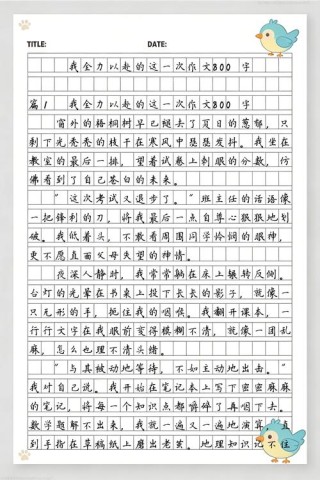 TITLE: DATE:
我全力以赴的这一次作文800 字
篇1 我全力以赴的这一次作文800 字
窗外的梧桐树早已褪去了夏日的葱郁，只
剩下光秃秃的枝干在寒风中瑟瑟发抖。我坐在
教室的最后一排，望着试卷上刺眼的分数，仿
佛看到了自己苍白的未来。
“这次考试又退步了。”班主任的话语像
一把锋利的刀，将我最后一点自尊心狠狠地划
破。我低着头，不敢看周围同学怜悯的眼神，
更不愿直面父母失望的神情。
夜深人静时，我常常躺在床上辗转反侧。
台灯的光晕在书桌上投下长长的影子，就像一
只无形的手，扼住我的咽喉。我翻开课本，一
行行文字在我眼前变得模糊不清，就像一团乱
麻，怎么也理不清头绪。
“与其被动地等待，不如主动地出击。”
我对自己说。我开始在笔记本上写下密密麻麻
的笔记，将每一个知识点都嚼碎了再咽下去。
数学题解不出来，我就一遍又一遍地演算，直
到手指在草稿纸上磨出老茧。地理知识记不住